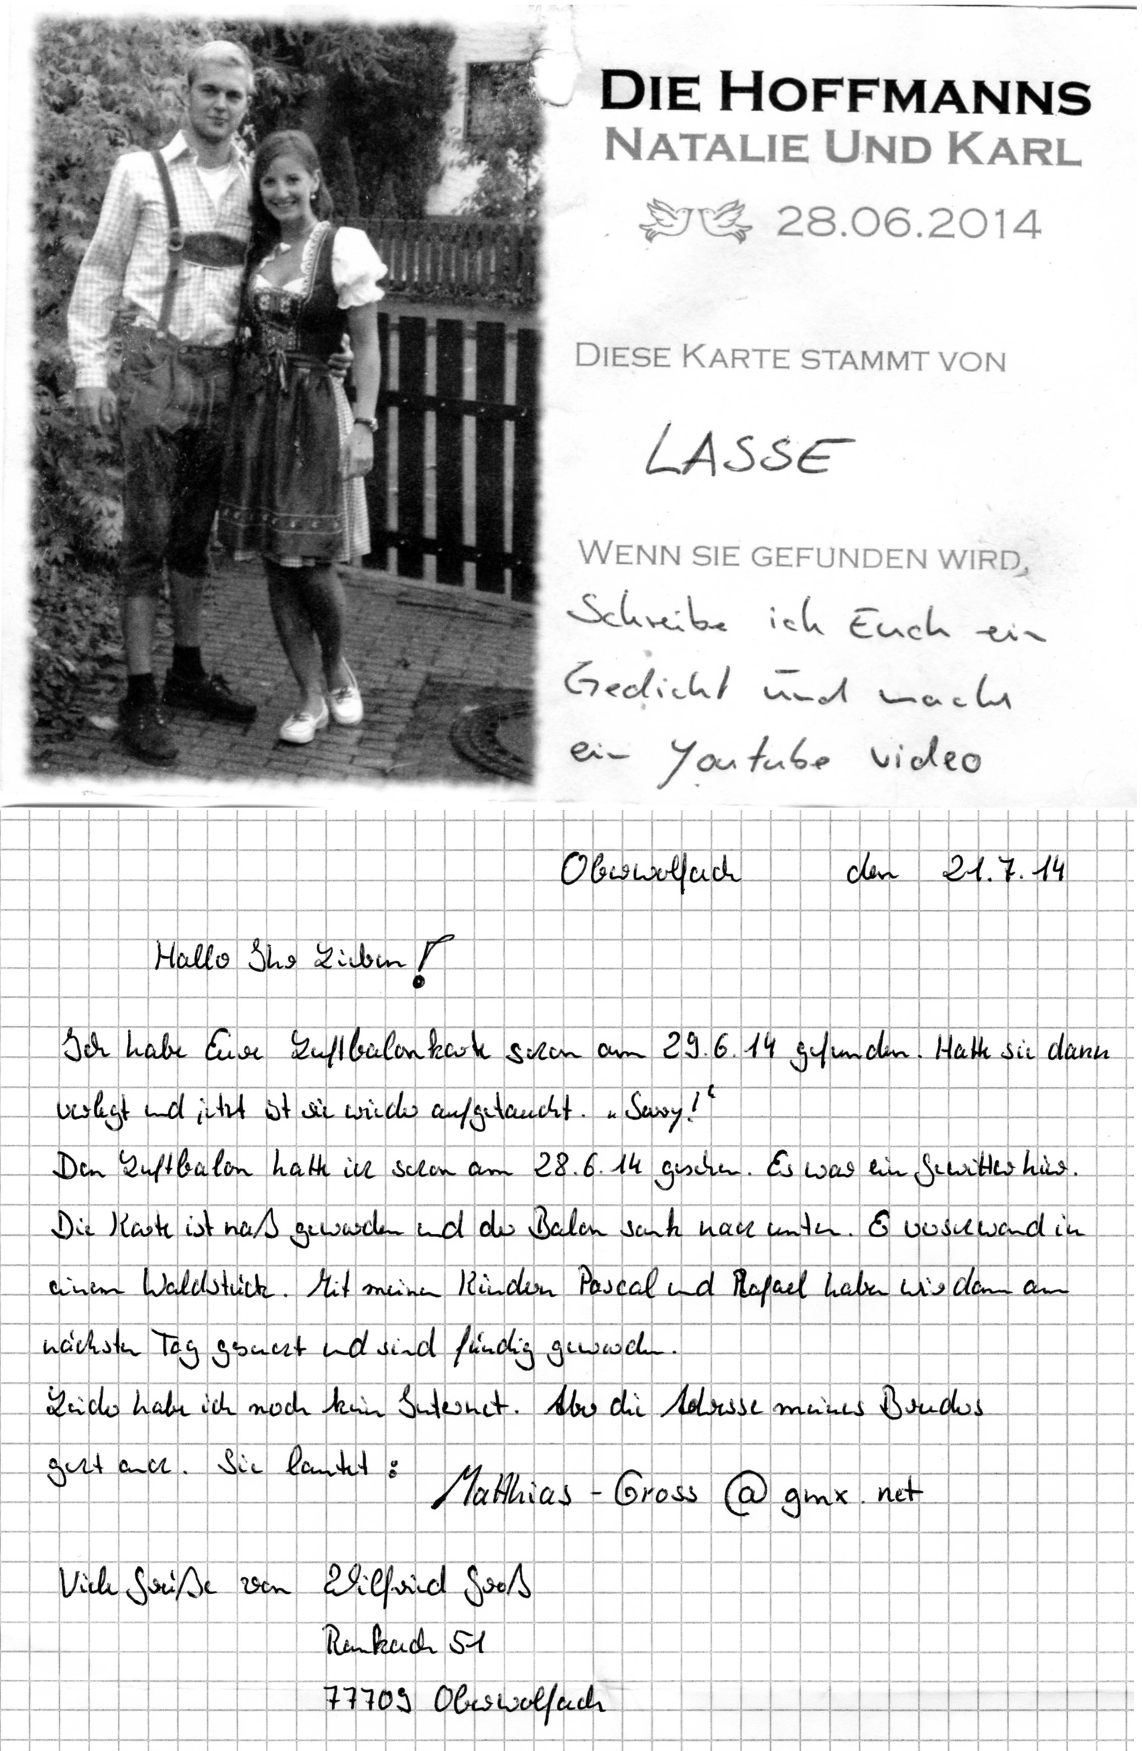 DIE HOFFMANNS
NATALIE UND KARL
28.06.2014
DIESE KARTE STAMMT VON
LASSE
WENN SIE GEFUNDEN WIRD,
Schreibe ich Euch ein
Gedicht und mache
ein Youtube video
Oberwolfach den 21.7.14
Hallo Ihr Lieben!
Ich habe Eure Luftbalonkarte schon am 29.6.14 gefunden. Hatte sie dann
verlegt und jetzt ist sie wieder aufgetaucht. „Sorry!“
Den Luftbalon hatte ich schon am 28.6.14 gesehen. Es war ein Gewitter hier.
Die Karte ist naß geworden und der Balon sank nach unten. Er verschwand in
einem Waldstück. Mit meinen Kindern Pascal und Rafael haben wir dann am
nächsten Tag gesucht und sind fündig geworden.
Leider habe ich noch kein Internet. Aber die Adresse meines Bruders
geht auch. Sie lautet:
Matthias-Gross@gmx.net
Viele Grüße von Wilfried Groß
Rankach 51
77709 Oberwolfach